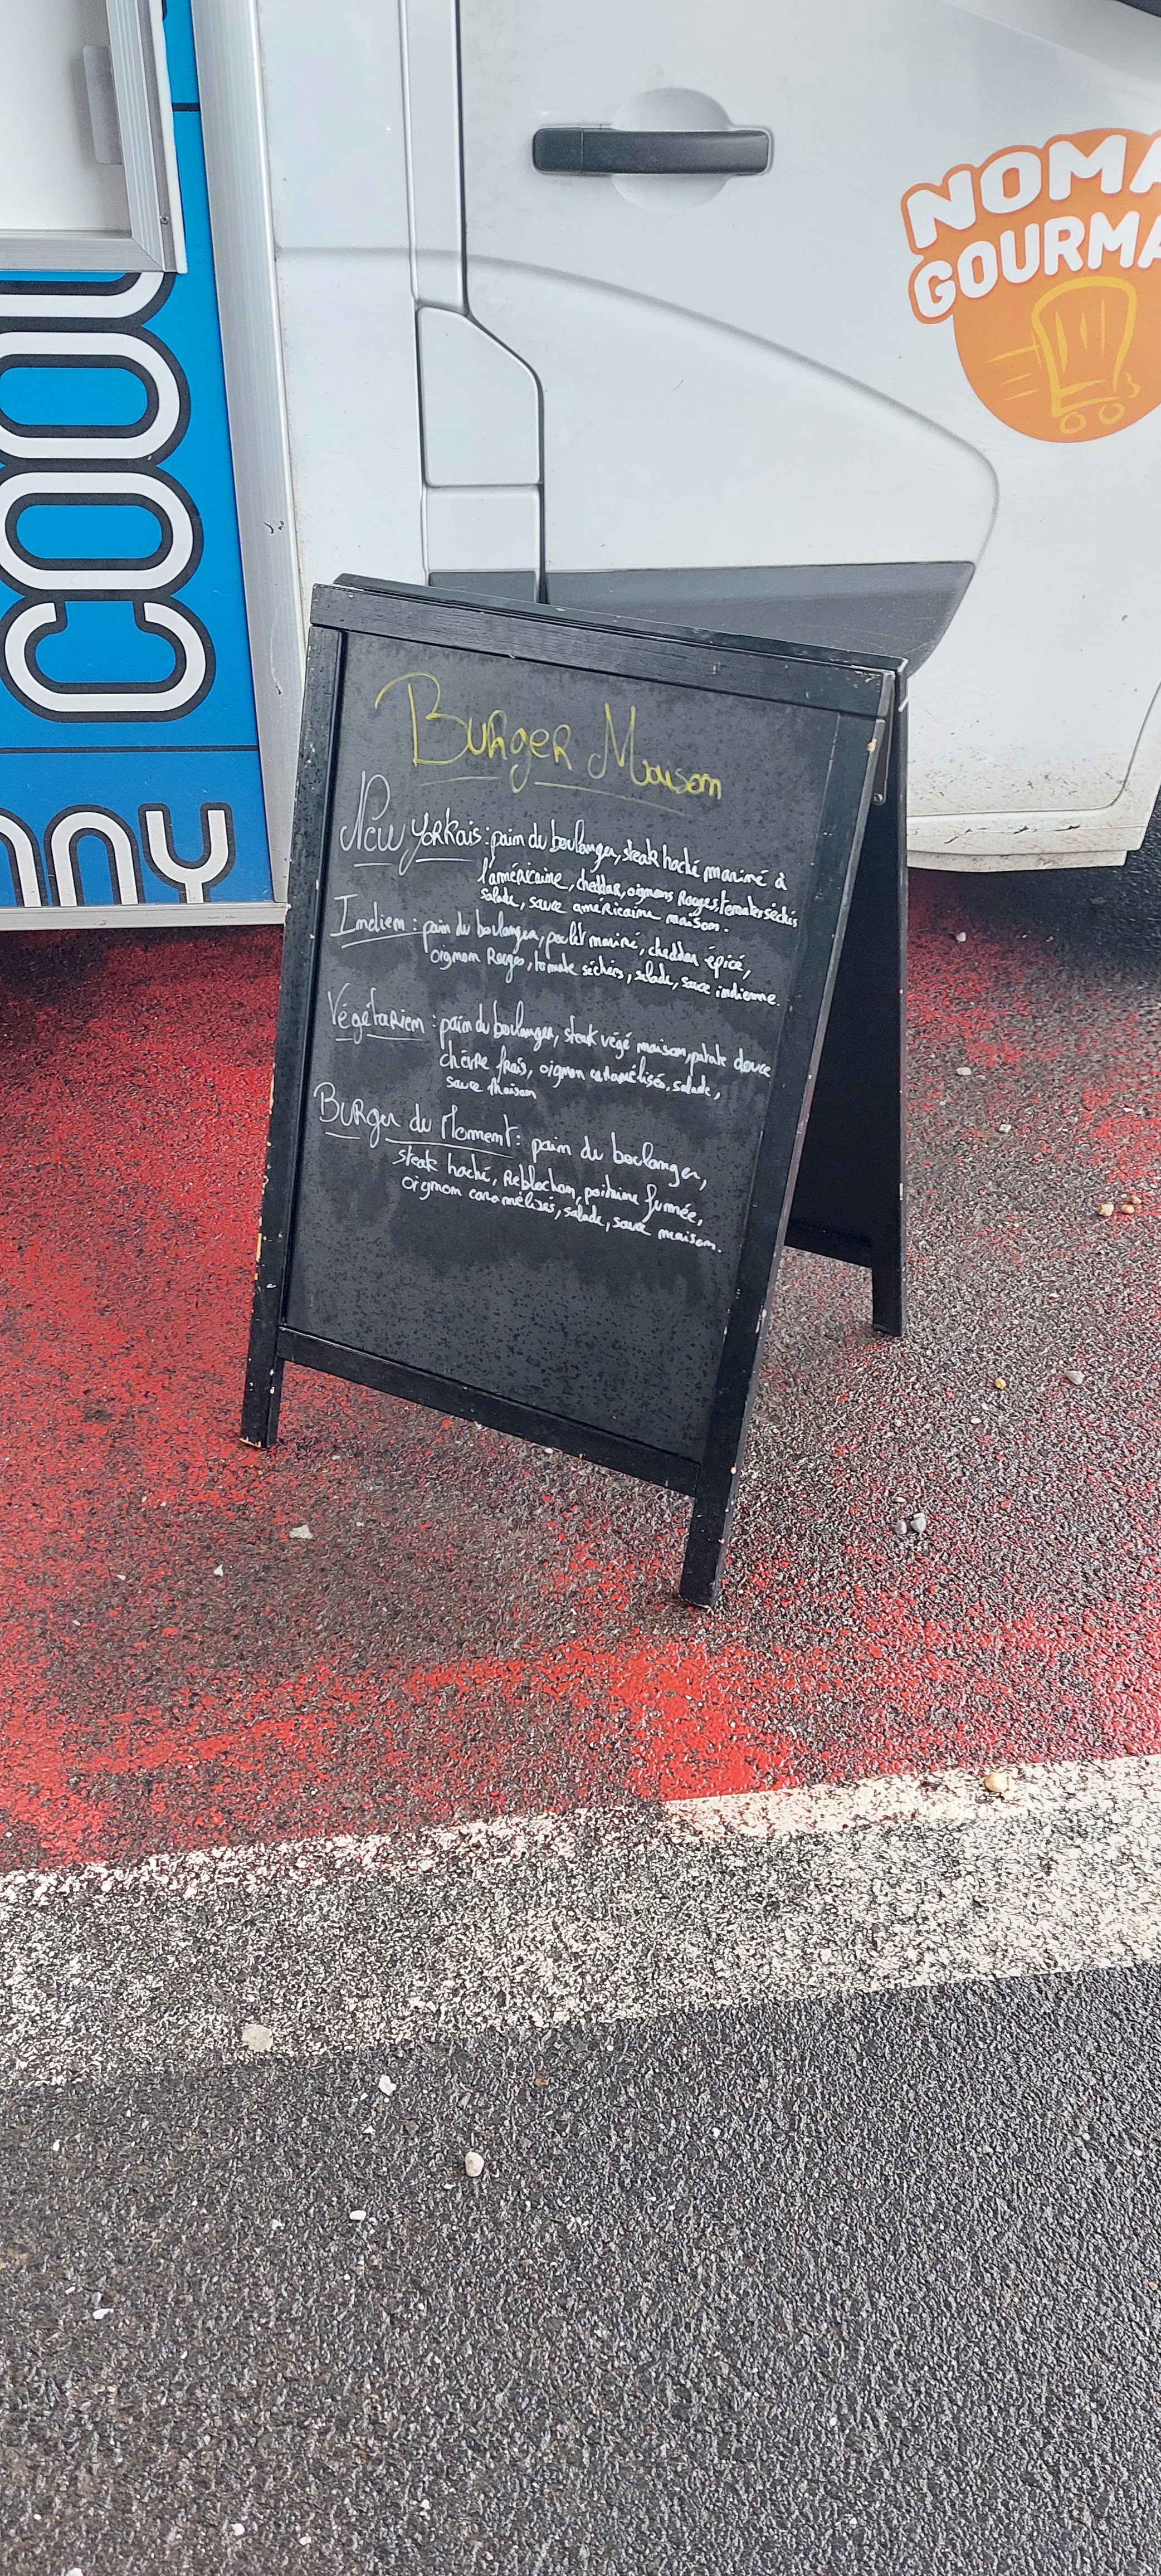 NOMA
GOURMA
COOL
NNY
Burger Maison
New Yorkais : pain du boulanger, steak haché mariné à
l'américaine, cheddar, oignons Rouges, tomates séchés
salade, sauce américaine maison.
Indien : pain du boulanger, poulet mariné, cheddar épicé,
oignon Rouges, tomate séchées, salade, sauce indienne.
Végétarien : pain du boulanger, steak végé maison, patate douce
chèvre frais, oignon caramélisés, salade,
sauce Maison
Burger du Moment : pain du boulanger,
steak haché, Reblochon, poitrine fumée,
oignon caramélisés, salade, sauce maison.